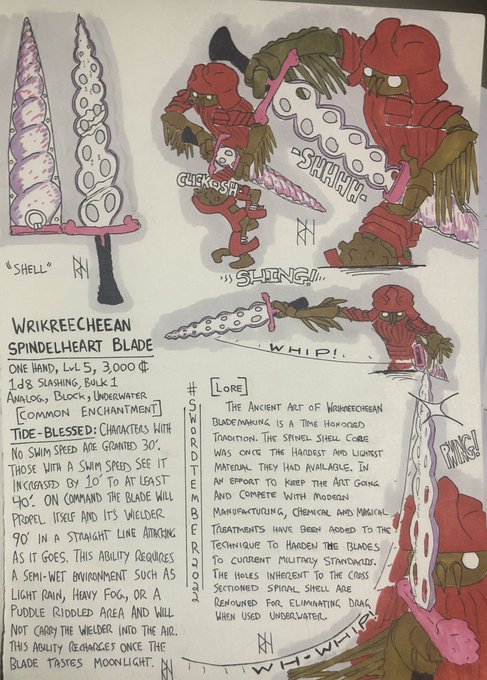 CLICK-OSH
-SHHHH-
"SHELL"
SHING!
WHIP!
PWING!
WH-WHIP!
WRIKREECHEEAN
SPINDELHEART BLADE
ONE HAND, LVL 5, 3,000 ₵
1d8 SLASHING, BULK 1
ANALOG, BLOCK, UNDERWATER
[COMMON ENCHANTMENT]
TIDE-BLESSED: CHARACTERS WITH
NO SWIM SPEED ARE GRANTED 30'.
THOSE WITH A SWIM SPEED SEE IT
INCREASED BY 10' TO AT LEAST
40'. ON COMMAND THE BLADE WILL
PROPEL ITSELF AND ITS WIELDER
90' IN A STRAIGHT LINE ATTACKING
AS IT GOES. THIS ABILITY REQUIRES
A SEMI-WET ENVIRONMENT SUCH AS
LIGHT RAIN, HEAVY FOG, OR A
PUDDLE RIDDLED AREA AND WILL
NOT CARRY THE WIELDER INTO THE AIR.
THIS ABILITY RECHARGES ONCE THE
BLADE TASTES MOONLIGHT.
#SWORDTEMBER2022
[LORE]
THE ANCIENT ART OF WRIKREECHEEAN
BLADEMAKING IS A TIME HONORED
TRADITION. THE SPINEL SHELL CORE
WAS ONCE THE HARDEST AND LIGHTEST
MATERIAL THEY HAD AVAILABLE. IN
AN EFFORT TO KEEP THE ART GOING
AND COMPETE WITH MODERN
MANUFACTURING, CHEMICAL AND MAGICAL
TREATMENTS HAVE BEEN ADDED TO THE
TECHNIQUE TO HARDEN THE BLADES
TO CURRENT MILITARY STANDARDS.
THE HOLES INHERENT TO THE CROSS
SECTIONED SPIRAL SHELL ARE
RENOWNED FOR ELIMINATING DRAG
WHEN USED UNDERWATER.